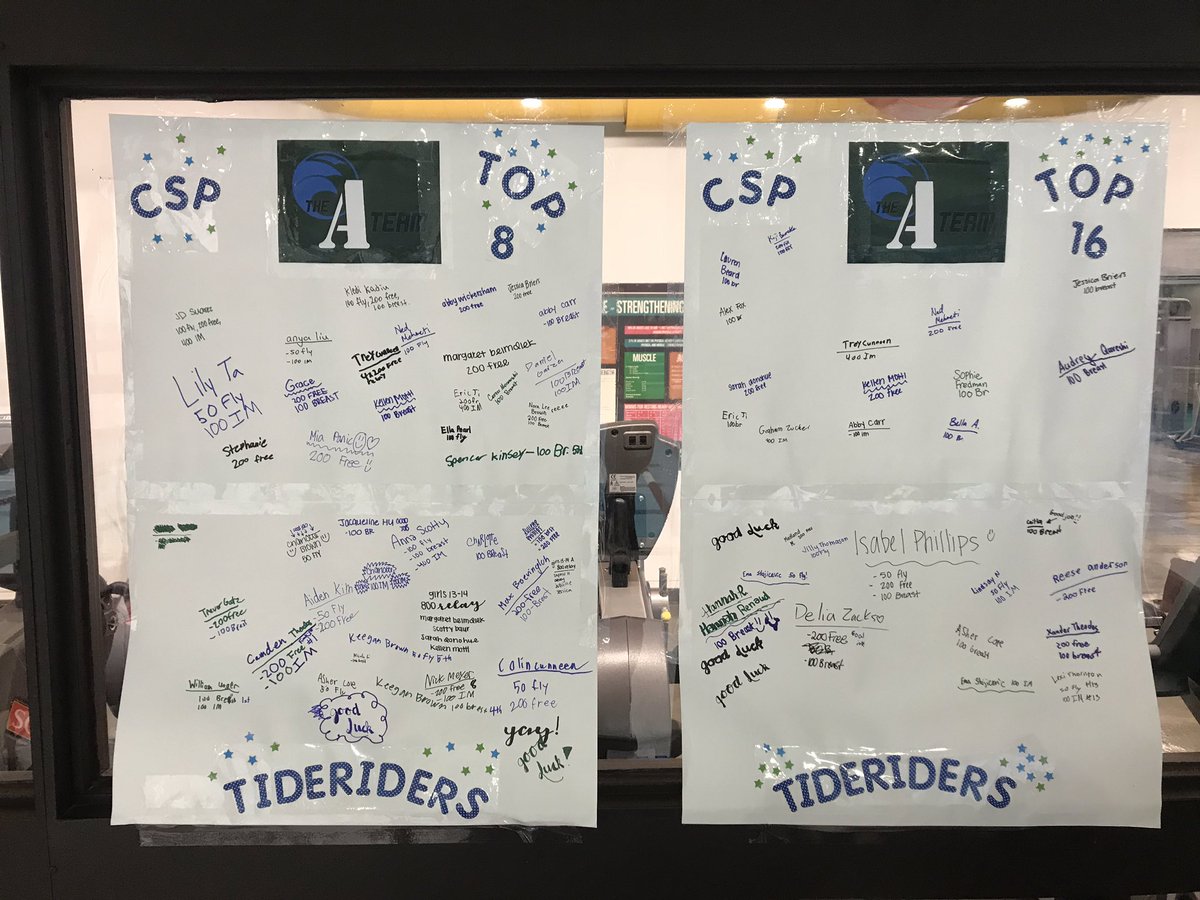 CSP
THE A TEAM
TOP
8
JD Suarez
100 fly, 200 free,
400 IM
Klebi Kadiu
100 fly, 200 free,
100 breast
abby wickersham
200 free
Jessica Briers
200 free
abby carr
-100 Breast
anya liu
-50 fly
-100 im
Ned
Mehmeti
100 fly
Trey Cunneen
margaret beimdiek
200 free
Daniel
100 Breast
100 IM
Lily Ta
50 FLY
100 IM
Grace
200 FREE
100 BREAST
Kellen Motti
100 Breast
Eric Ji
400 IM
Ella Pearl
100 fly
Stephanie
200 free
Mia Panic
200 Free
Spencer Kinsey - 100 Br.
Jacqueline Hu
-100 BR
Anna Scotty
-100 fly
-100 breast
-400 IM
Charlotte
100 Breast
BROWN
50 FLY
Aiden Kith
50 Fly
200 Free
girls 13-14
800 relay
margaret beimdiek
scotty baur
Sarah donohue
Kellen motti
Max Boeringloh
200 free
100 Breast
Trevor Gatz
-200 free
-100 Breast
Camden Theodos
-200 Free
-100 IM
Keegan Brown 50 fly 8th
William Unger
100 Breast 1st
100 IM
Asher Love
50 Fly
Keegan Brown 100 breast 4th
Nick Meyer
-200 free
-100 IM
Colin Cunneen
50 fly
200 free
good
luck
yay!
good
luck
TIDERIDERS
CSP
THE A TEAM
TOP
16
Lauren
Beard
100 br
Jessica Briers
100 breast
Alex Fox
100 Br
Ned
Mehmeti
200 Free
Trey Cunneen
400 Im
Audrey Qureshi
100 Breast
Sarah donohue
200 free
Kellen Motti
200 free
Sophie
Friedman
100 Br
Eric Ji
100 br
Graham Zucker
400 IM
Abby Carr
-100 im
Bella A.
100 Br
good luck
Jilly Thomason
50 Fly
Isabel Phillips
- 50 fly
- 200 Free
- 100 Breast
Ema Stojicevic 50 Fly!
Lindsay N
50 Fly
100 IM
Reese anderson
-200 free
Hannah R.
Hannah Renaud
100 Breast!!
Delia Zacks
-200 Free
-100 Breast
good luck
good luck
Asher Love
100 breast
Xander Theodos
200 free
100 breast
Ema Stojicevic 100 IM
Lexi Thornton
50 fly #15
100 IM #13
TIDERIDERS
- STRENGTHENING
MUSCLE